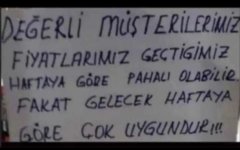 DEĞERLİ MÜŞTERİLERİMİZ
FİYATLARIMIZ GEÇTİGİMİZ
HAFTAYA GÖRE PAHALI OLABİLİR
FAKAT GELECEK HAFTAYA
GÖRE ÇOK UYGUNDUR!!!